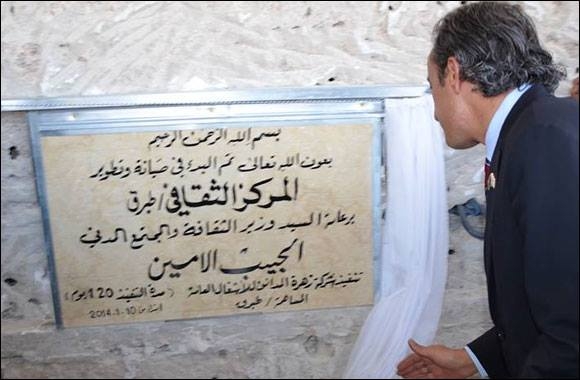 بسم الله الرحمن الرحيم
بعون الله تعالى تم البدء في صيانة وتطوير
المركز الثقافي / طبرق
برعاية السيد وزير الثقافة والمجتمع المدني
الحبيب الامين
تنفيذ شركة زهرة المدائن للأشغال العامة (مدة التنفيذ 120 يوم)
المساهمة / طبرق 2014-1-10